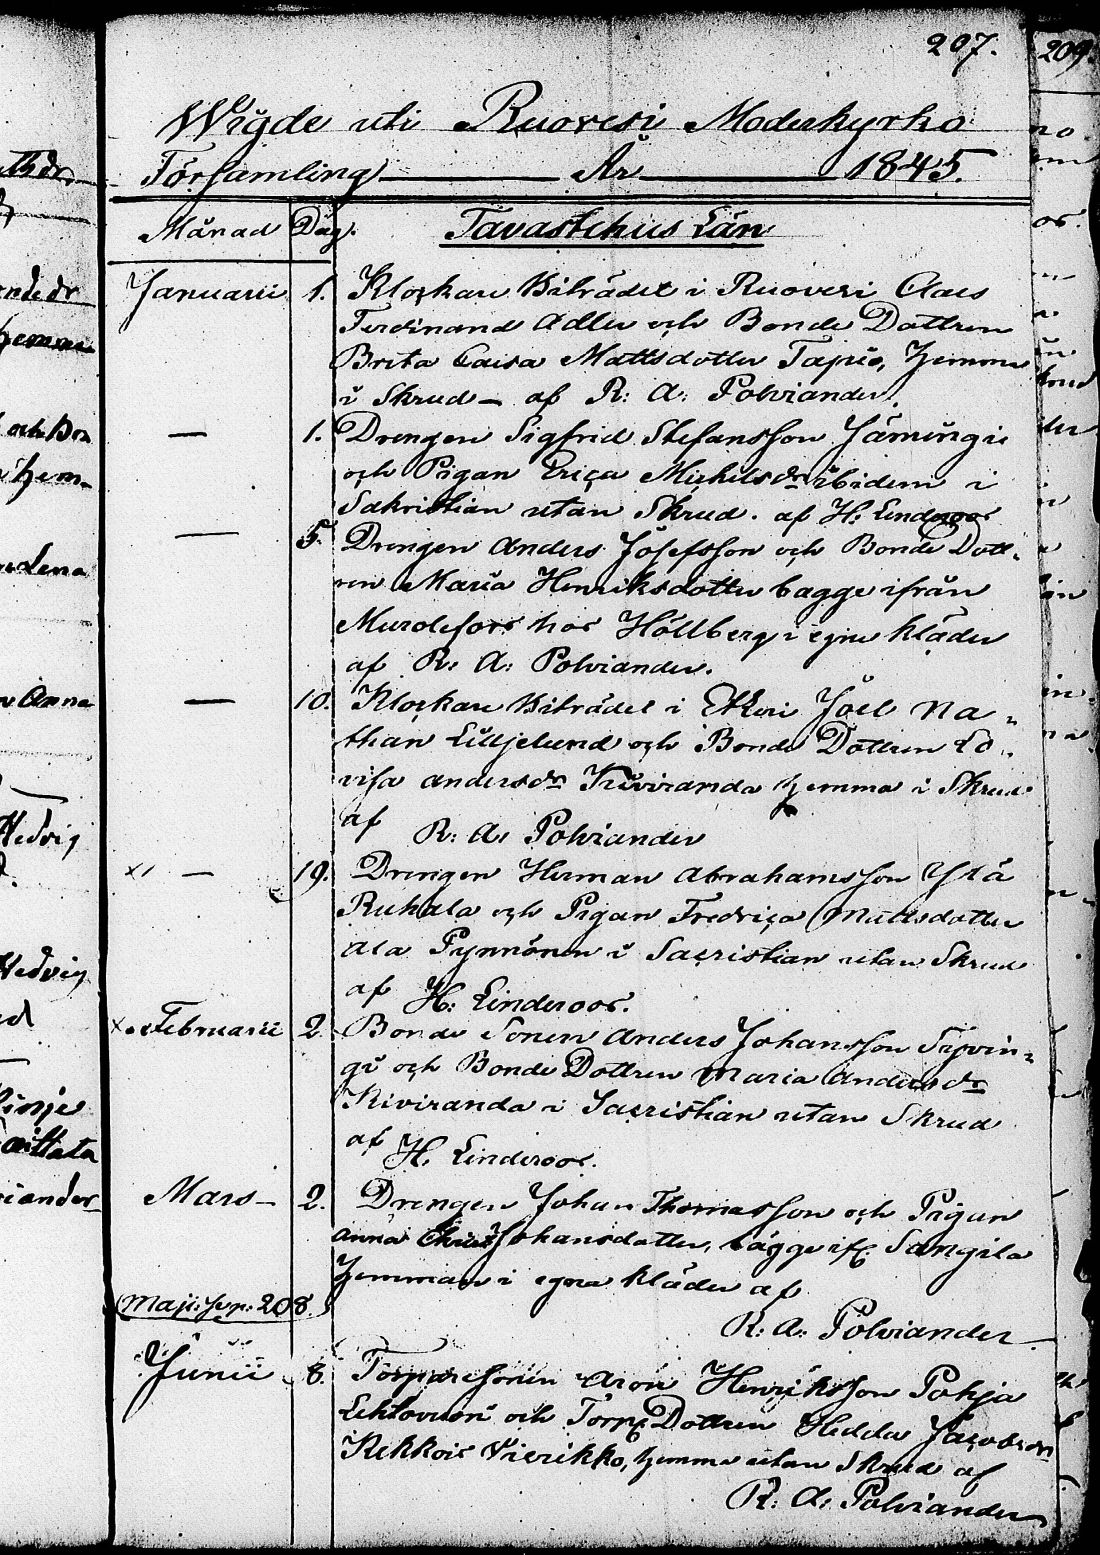 207.
209.
Wigde uti Ruovesi Moderkyrko
Församling År 1845.
Månad Dag. Tavastehus Län
Januarii 1. Klockare Biträdet i Ruovesi Claes
Ferdinand Adler och Bonde Dottren
Brita Caisa Mattsdotter Tapio, hemma
i Skrud – af R: A: Polviander.
— 1. Drengen Sigfrid Stefansson
och Pigan Erica Michelsdr ibidem i
Sakristian utan Skrud. af H. Linderoos
— 5. Drengen Anders Josefsson och Bonde Dott-
ren Maria Henriksdotter bagge ifrån
Murolefors hos Höllberg i egne kläder
af R: A: Polviander.
— 10. Klockare Biträdet i Etseri Joel Na-
than Lilljelund och Bonde Dottren Lo-
visa Andersdr Kiviranda hemma i Skrud
af R. A. Polviander
x1 — 19. Drengen Herman Abrahamsson Ylä
Ruhala och Pigan Fredrica Mattsdotter
Ala Pynnönen i Sacristian utan Skrud
af H: Linderoos.
Februarii 2. Bonde Sonen Anders Johansson Syvin-
gi och Bonde Dottren Maria Andersdr
Kiviranda i Sacristian utan Skrud
af H. Linderoos.
Mars – 2. Drengen Johan Thomasson och Pigan
Anna Johansdotter, bägge ifr. Sangila
hemman i egna kläder af
(Maji: 208.)
R: A: Polviander
Junii 8. Torparesonen Aron Henriksson Pohja
och Torp. Dottren Hedda Jacobsdr
Kekkois Vierikko, hemma utan Skrud af
R: A: Polviander
och Bon
hem-
Lena
Anna
Hedvig
Hedvig